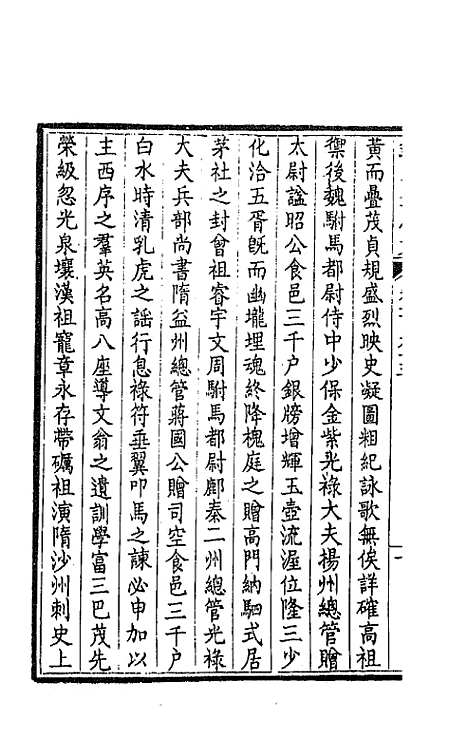 黃而疊茂貞規盛烈映史凝圖粗紀詠歌無俟詳確高祖
禦後魏駙馬都尉侍中少保金紫光祿大夫楊州總管贈
太尉諡昭公食邑三千户銀牓增輝玉壺流渥位隆三少
化洽五胥旣而幽壠埋魂終降槐庭之贈高門納駟式居
茅社之封曾祖睿宇文周駙馬都尉鄜秦二州總管光祿
大夫兵部尚書隋益州總管蔣國公贈司空食邑三千户
白水時清乳虎之謡行息祿符垂翼叩馬之諫必申加以
主西序之羣英名高八座導文翁之遺訓學富三巴茂先
榮級忽光泉壤漢祖寵章永存帶礪祖演隋沙州刺史上